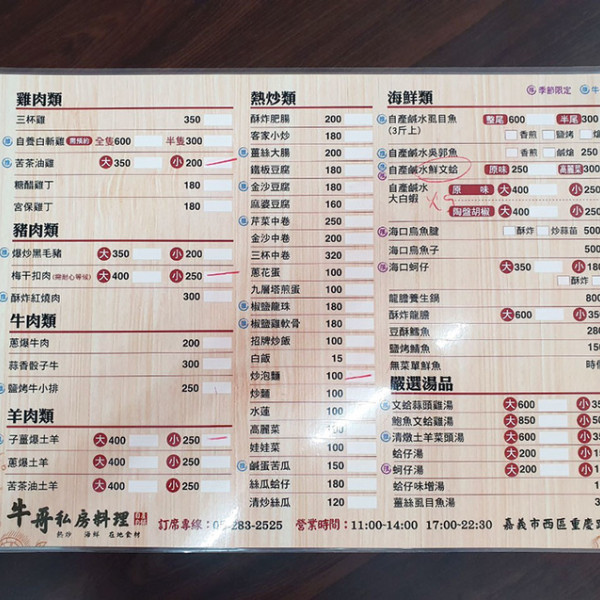 雞肉類
三杯雞 350
自養白斬雞 需預約 全隻600 半隻300
苦茶油雞 大350 小200
糖醋雞丁 180
宮保雞丁 180
豬肉類
爆炒黑毛豬 大350 小200
梅干扣肉(需耐心等候) 大400 小250
酥炸紅燒肉 300
牛肉類
蔥爆牛肉 200
蒜香骰子牛 300
鹽烤牛小排 250
羊肉類
子薑爆土羊 大400 小250
蔥爆土羊 大400 小250
苦茶油土羊 大400 小250
熱炒類
酥炸肥腸 200
客家小炒 180
薑絲大腸 200
鐵板豆腐 180
金沙豆腐 180
麻婆豆腐 160
芹菜中卷 250
金沙中卷 200
三杯中卷 320
蔥花蛋 100
九層塔煎蛋 100
椒鹽龍珠 180
椒鹽雞軟骨 180
招牌炒飯 100
白飯 15
炒泡麵 100
炒麵 100
水蓮 100
高麗菜 100
娃娃菜 100
鹹蛋苦瓜 150
絲瓜蛤仔 180
清炒絲瓜 120
季節限定 牛
海鮮類
自產鹹水虱目魚 整尾600 半尾300
(3斤上) 香煎 鹽烤
自產鹹水吳郭魚 香煎 鹹燴 250
自產鹹水鮮文蛤 原味250 高麗菜300
自產鹹水 原味 大400 小250
大白蝦 x5
陶盤胡椒 大400 小250
海口烏魚腱 酥炸 炒蒜苗 500
海口烏魚子 500
海口蚵仔 大350 小180
酥炸
龍膽養生鍋 800
酥炸龍膽 大600 小350
豆酥鱈魚 280
鹽烤鯖魚 150
無菜單鮮魚 時價
嚴選湯品
文蛤蒜頭雞湯 大600 小350
鮑魚文蛤雞湯 大850 小500
清燉土羊菜頭湯 大600 小350
蛤仔湯 大200 小
蚵仔湯 大200 小
蛤仔味增湯
薑絲虱目魚湯
牛哥私房料理
熱炒 海鮮 在地食材
訂席專線：05-283-2525 營業時間：11:00-14:00 17:00-22:30 嘉義市西區重慶路